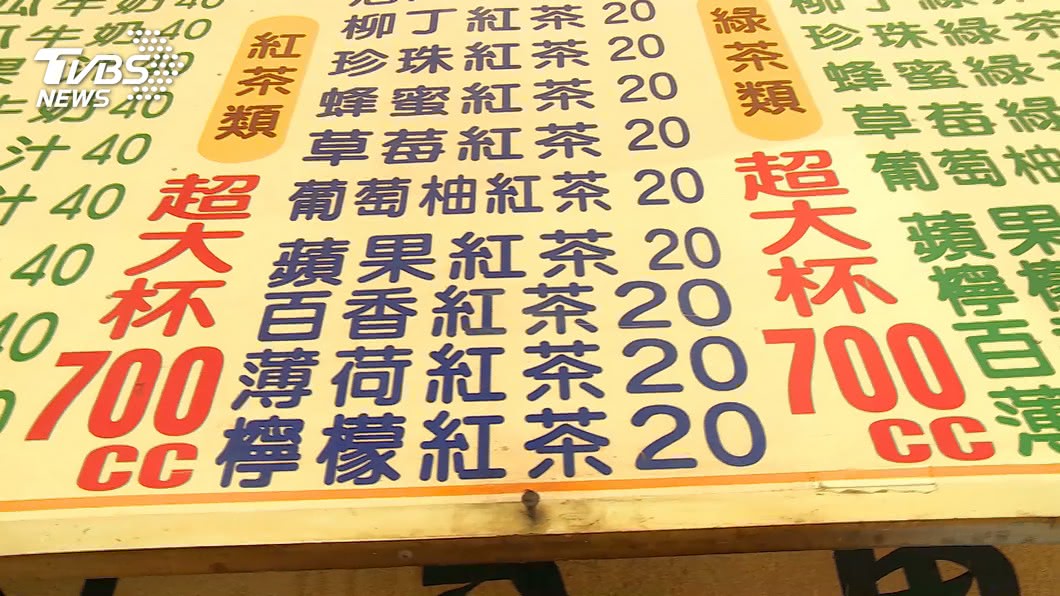 TVBS
NEWS
瓜牛奶40
瓜牛奶40
牛奶40
汁40
汁40
40
40
紅茶類
超大杯
700
cc
柳丁紅茶20
珍珠紅茶20
蜂蜜紅茶20
草莓紅茶20
葡萄柚紅茶20
蘋果紅茶20
百香紅茶20
薄荷紅茶20
檸檬紅茶20
綠茶類
超大杯
700
cc
柳丁綠
珍珠綠茶
蜂蜜綠
草莓綠
葡萄柚
蘋果
檸檬
百
薄